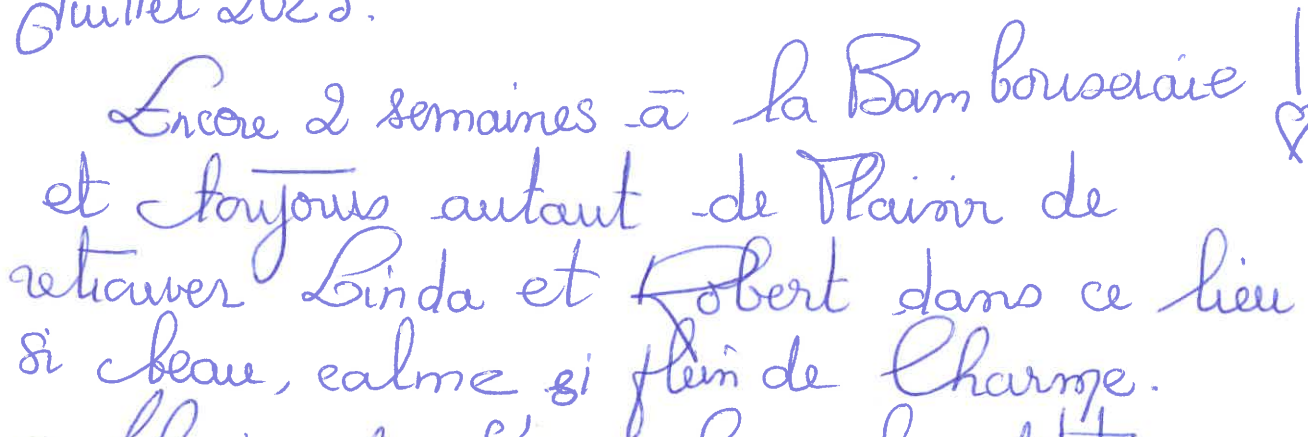 Juillet 2023.
Encore 2 semaines à la Bambouseraie !
et toujours autant de Plaisir de
retrouver Linda et Robert dans ce lieu
si beau, calme si plein de Charme.